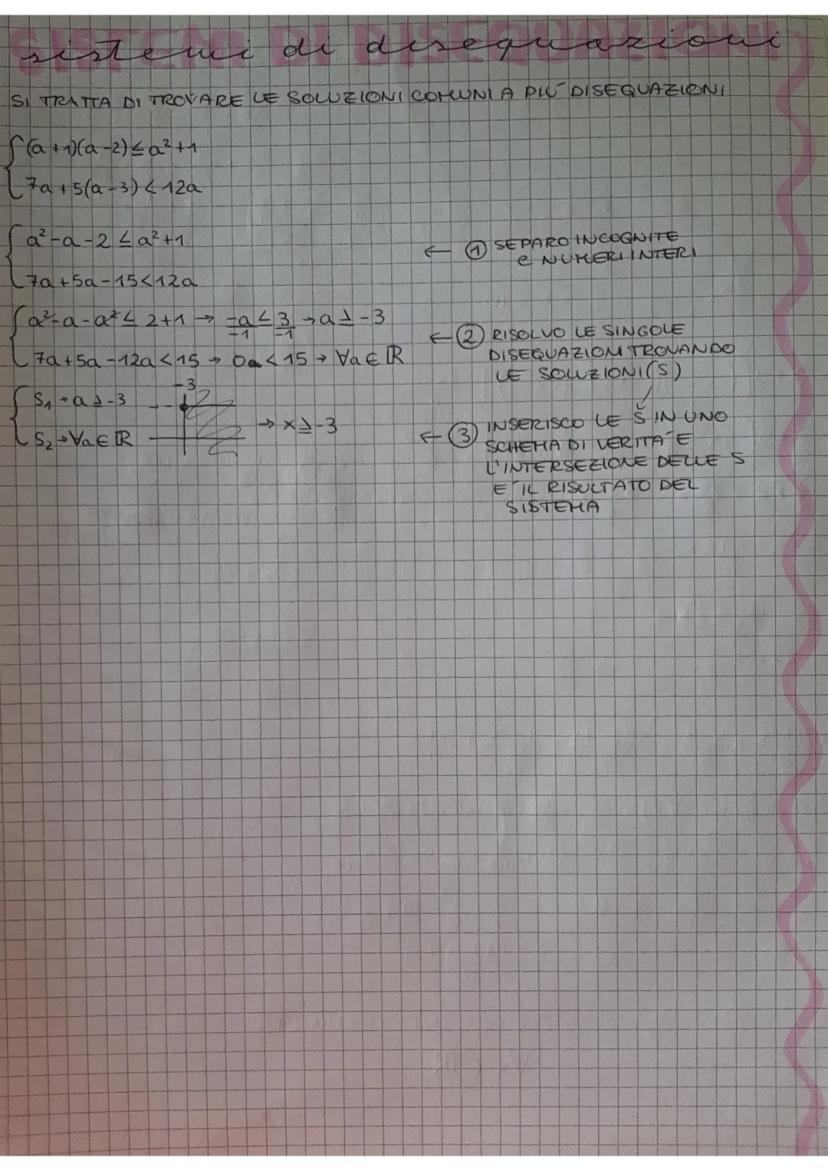 SISTEMI DI DISEQUAZIONI
sistemi di disequazioni
SI TRATTA DI TROVARE LE SOLUZIONI COMUNI A PIÙ DISEQUAZIONI
{(a+1)(a-2)≤a²+1
7a+5(a-3)<12a
{a²-a-2≤a²+1
7a+5a-15<12a
← ① SEPARO INCOGNITE
e NUMERI INTERI
{a²-a-a²≤2+1→ -a/-1 ≤ 3/-1 → a≥-3
7a+5a-12a<15→0a<15→∀a∈ℝ
← ② RISOLVO LE SINGOLE
DISEQUAZIONI TROVANDO
LE SOLUZIONI(S)
-3
{S₁→a≥-3
S₂→∀a∈ℝ
→x≥-3
← ③ INSERISCO LE S IN UNO
SCHEMA DI VERITA' E
L'INTERSEZIONE DELLE S
E' IL RISULTATO DEL
SISTEMA